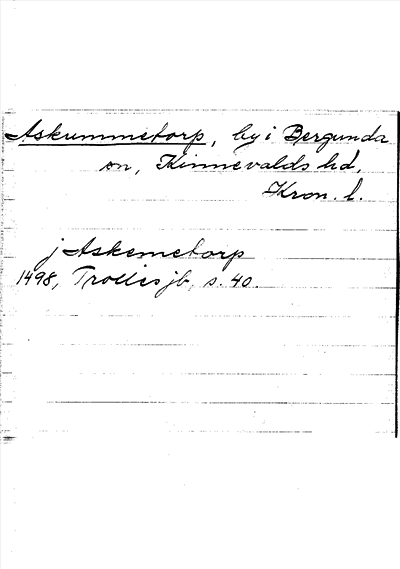 Askummetorp, by i Bergunda
sn, Kinnevalds hd,
Kron. l.
j Askemetorp
1498, Trolles jb, s. 40.